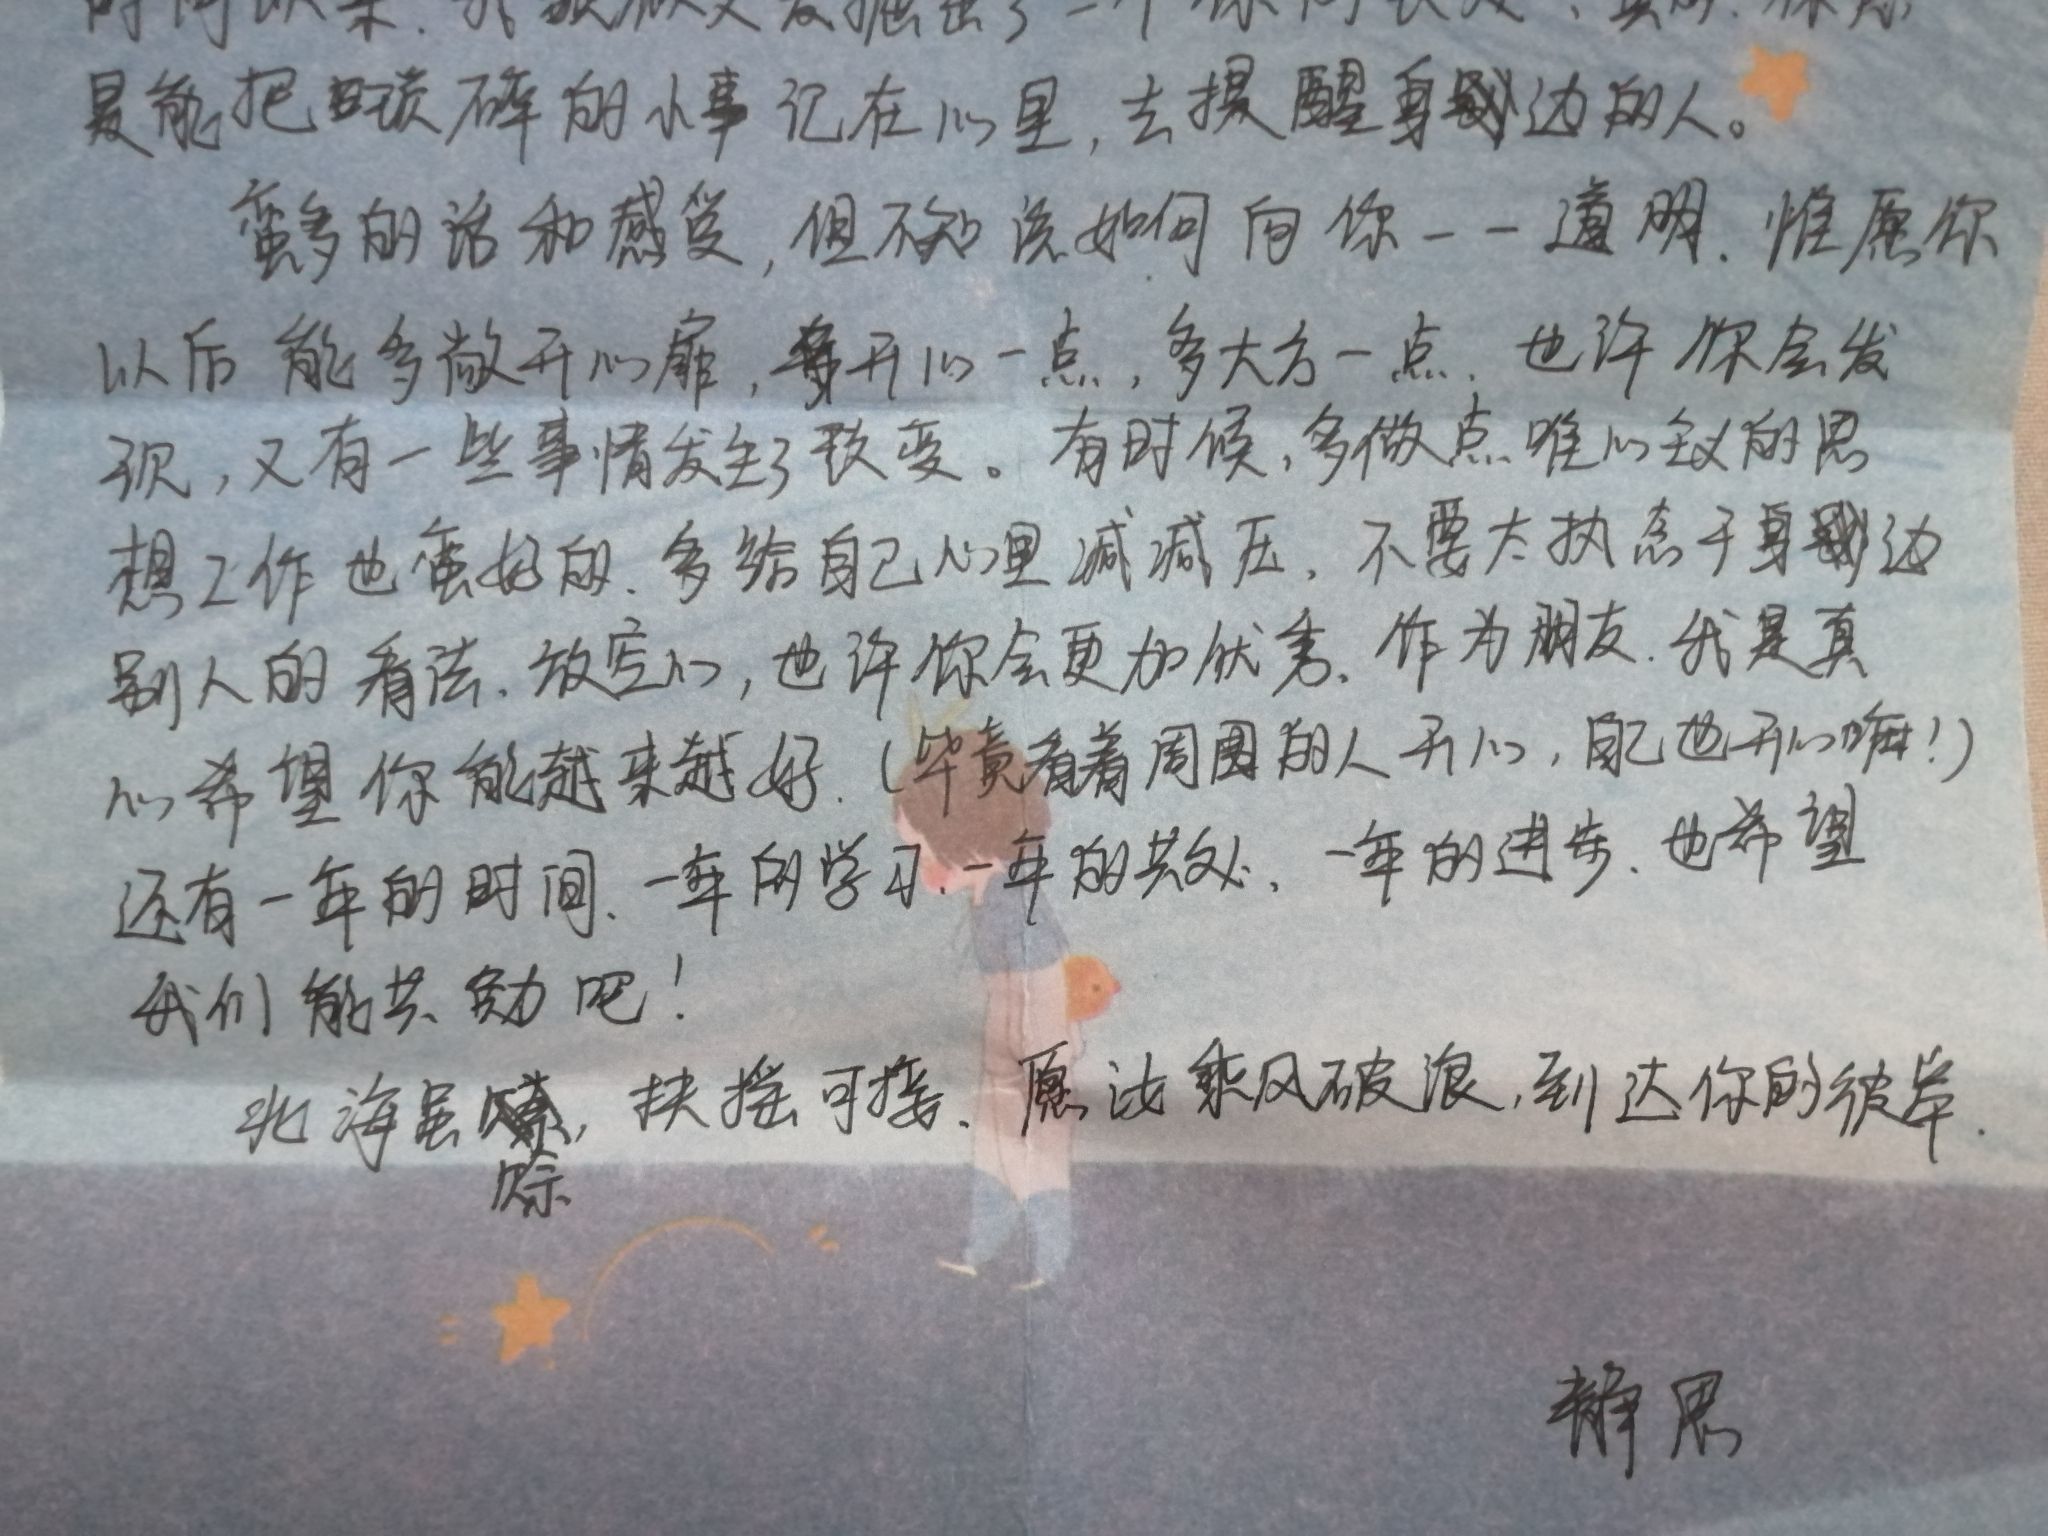 时间以来，我欣欣又发掘出了一个你的长处，真的，你总
是能把琐碎的小事记在心里，去提醒身边的人。
蛮多的话和感受，但不知该如何向你一一道明，惟愿你
以后能多敞开心扉，多开心一点，多大方一点，也许你会发
现，又有一些事情发生了改变。有时候，多做点唯心主义的思
想工作也蛮好的，多给自己心里减减压，不要太执念于身边
别人的看法，放宽心，也许你会更加优秀，作为朋友，我是真
心希望你能越来越好，(毕竟看着周围的人开心，自己也开心嘛！)
还有一年的时间，一年的学习，一年的共处，一年的进步，也希望
我们能共勉吧！
北海虽赊，扶摇可接，愿汝乘风破浪，到达你的彼岸.
静思